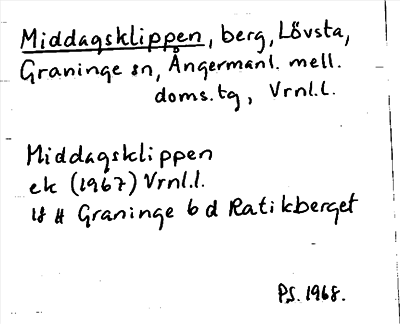 Middagsklippen, berg, Lövsta,
Graninge sn, Ångermanl. mell.
doms.tg, Vrnl.l.
Middagsklippen
ek (1967) Vrnl.l.
Graninge b d Ratikberget
P.S. 1968.